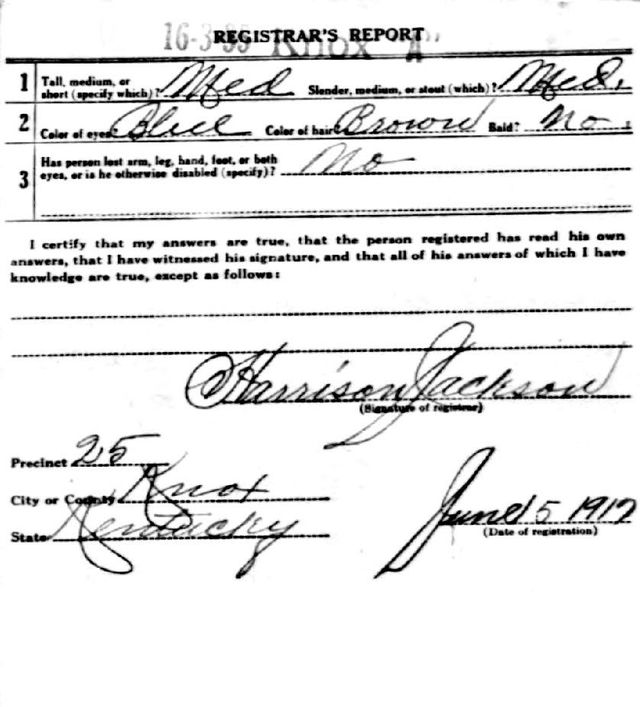 16-3-35 Knox "A"
REGISTRAR'S REPORT
1 Tall, medium, or short (specify which)? Med Slender, medium, or stout (which)? Med.
2 Color of eyes Blue Color of hair Brown Bald? No
3 Has person lost arm, leg, hand, foot, or both eyes, or is he otherwise disabled (specify)? No
I certify that my answers are true, that the person registered has read his own
answers, that I have witnessed his signature, and that all of his answers of which I have
knowledge are true, except as follows:
Harrison Jackson
(Signature of registrar)
Precinct 25
City or County Knox
State Kentucky
June 5 1917
(Date of registration)